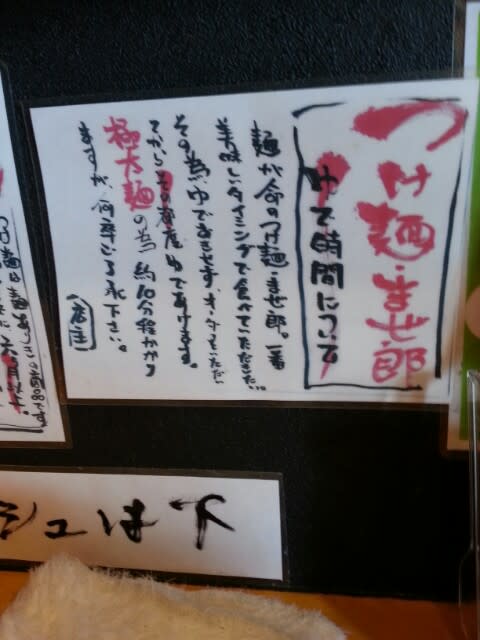 つけ麺・ませ郎
ゆで時間について
麺が命のつけ麺・ませ郎。一番
美味しいタイミングで食べていただきたい。
その為ゆでおきせず、オーダーいただい
てからその都度ゆであげます。
極太麺の為約10分程かかり
ますが、何卒ご了承下さい。
店主
シュは下